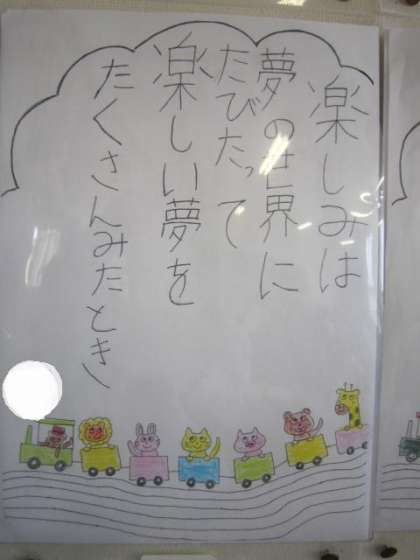 楽しみは
夢の世界に
たびたって
楽しい夢を
たくさんみたとき